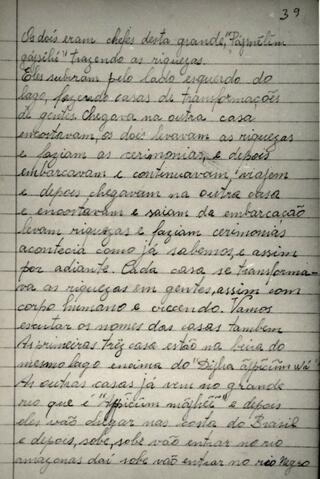 39
Os dois eram chefes desta grande, "Pãmilim
gasilú" trazendo as riquezas.
Eles subiram pelo lado esquerdo do
lago, fazendo casas de transformações
de gentes. Chegava na outra casa
encostavam, os dois levavam as riquezas
e faziam as cerimonias, e depois
embarcavam e continuavam viajem
e depois chegavam na outra casa
e encostavam e saiam da embarcação
levam riquezas e faziam ceremonias
acontecia como já sabemos, e assim
por adiante. Cada casa, se transforma-
va as riquezas em gentes, assim com
corpo humano e crecendo. Vamos
escutar os nomes das casas tambem
As primeiras três casa estão na beira do
mesmo lago encima do "Diʼlia
As outras casas já vem no grande
rio que é e depois
eles vão chegar nas costa do Brasil
e depois, sobe, sobe vão entrar no rio
amazonas daí sobe vão entrar no rio Negro